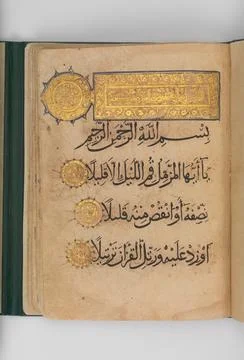 بِسْمِ اللَّهِ الرَّحْمَٰنِ الرَّحِيمِ
يَا أَيُّهَا الْمُزَّمِّلُ قُمِ اللَّيْلَ إِلَّا قَلِيلًا
نِصْفَهُ أَوِ انْقُصْ مِنْهُ قَلِيلًا
أَوْ زِدْ عَلَيْهِ وَرَتِّلِ الْقُرْآنَ تَرْتِيلًا